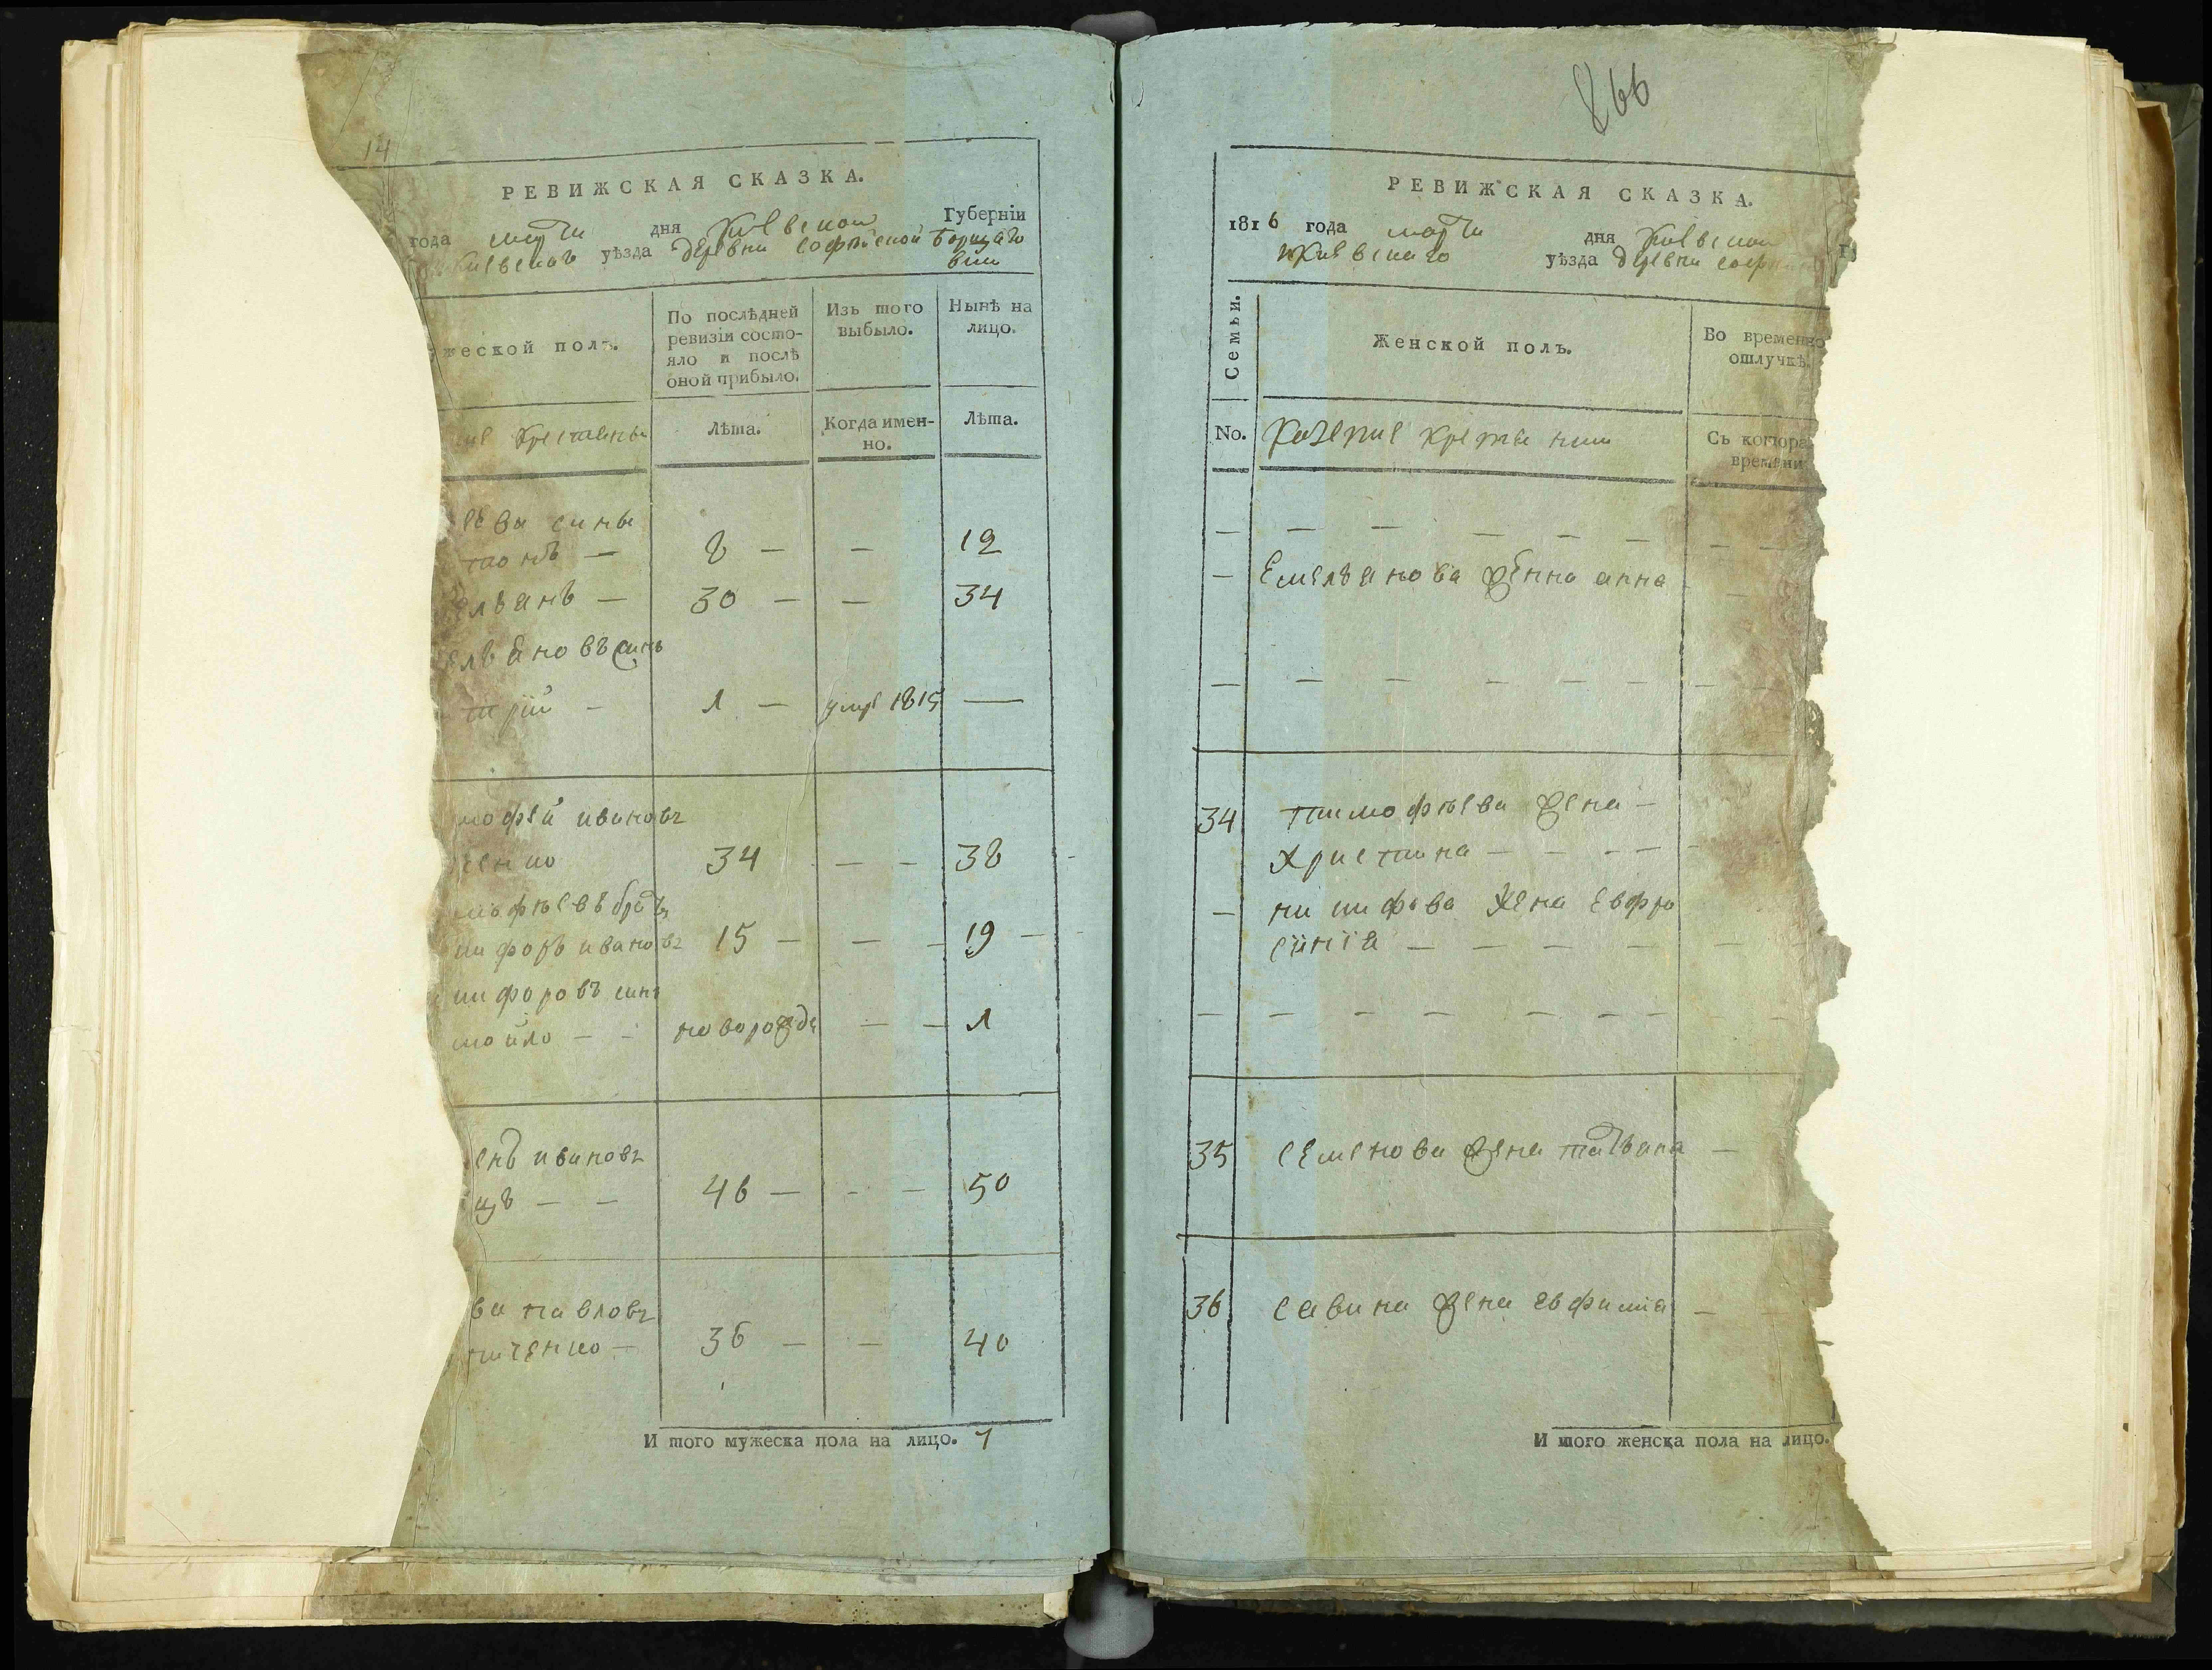 14
РЕВИЖСКАЯ СКАЗКА.
года марта дня Киевской Губерніи
Киевскаго уѣзда деревни Софiиской Борщаго
вки
жеской полъ.
По послѣдней
ревизіи состо-
яло и послѣ
оной прибыло.
Изъ того
выбыло.
Нынѣ на
лицо.
Крестяне
Лѣта.
Когда имен-
но.
Лѣта.
ѣева синъ
тонъ — 8 — — 12
елянъ — 30 — — 34
еляновъ синъ
трій — 1 — умре 1815 —
мофей ивановъ
енко 34 — — 38
мофѣевъ братъ
кифоръ ивановъ 15 — — — 19 —
кифоровъ синъ
мойло — — новорожде — — 1
енъ ивановъ
цъ — — 46 — - — 50
ва павловъ
ниченко — 36 — — 40
И того мужеска пола на лицо. 7
866
РЕВИЖСКАЯ СКАЗКА.
1816 года марта дня Киевской
Киевскаго уѣзда деревни Софи
Семьи.
Женской полъ.
Во временно
отлучкѣ.
No.
Казение Крестянки
Съ котора
времени
— — — — — — — —
— Емелянова жѣнна анна —
— — — — — — — —
34 тимофѣева жена —
христина — — — —
— никифова жена евфро
синія — — — — — — —
— — — — — — — — —
35 семенова жена татьяна —
36 савина жена евфимія — —
И того женска пола на лицо.